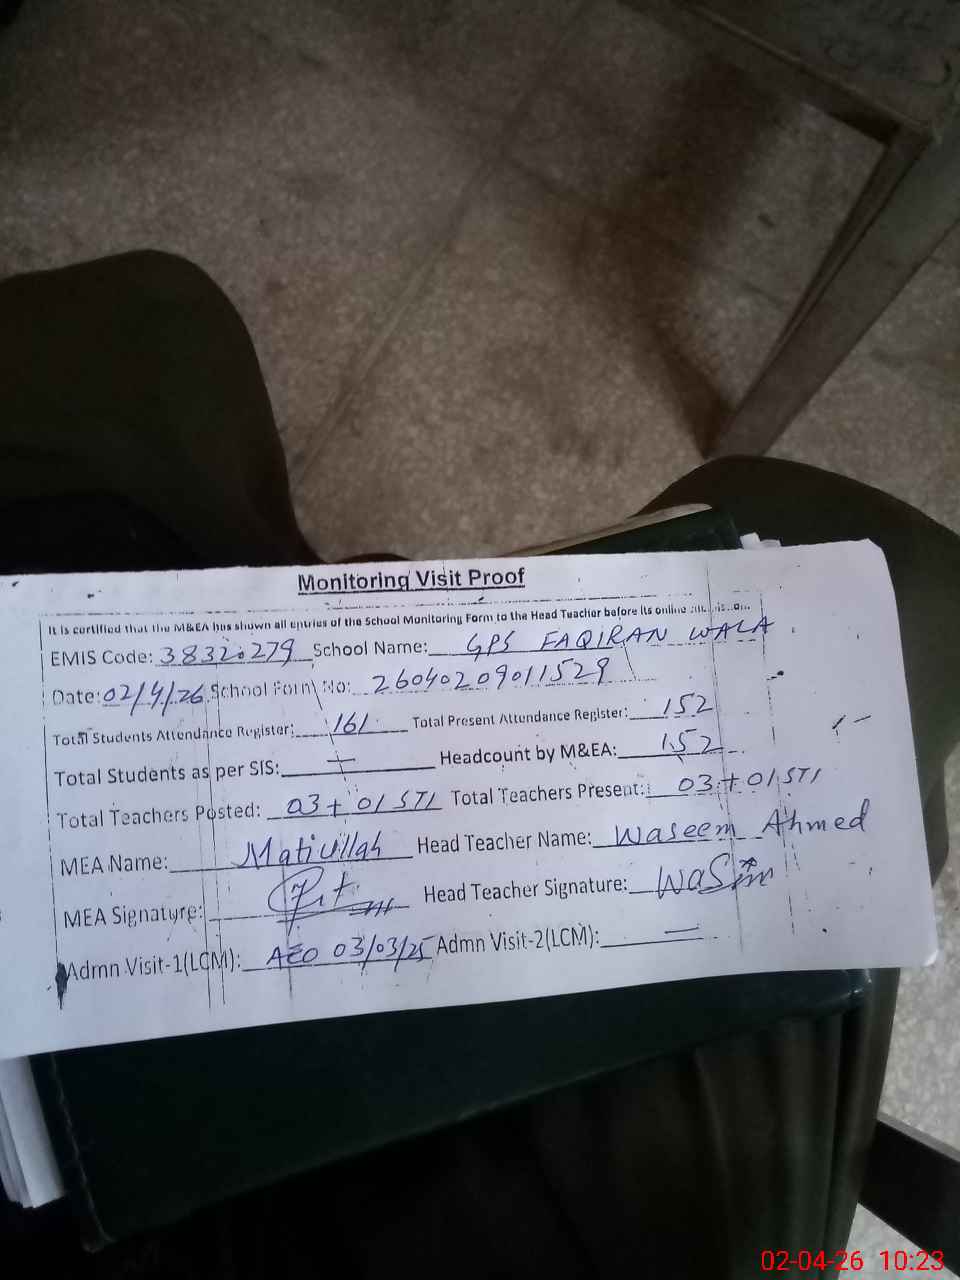 Monitoring Visit Proof
It is certified that the M&EA has shown all entries of the School Monitoring Form to the Head Teacher before its online
EMIS Code: 38320279 School Name: GPS FAQIRAN WALA
Date: 02/4/26 School Form No: 26040209011529
Total Students Attendance Register: 161 Total Present Attendance Register: 152
Total Students as per SIS: Headcount by M&EA: 152
Total Teachers Posted: 03+01 STI Total Teachers Present: 03+01 STI
MEA Name: Matiullah Head Teacher Name: Waseem Ahmed
MEA Signature: Head Teacher Signature: Wasim
Admn Visit-1(LCM): AEO 03/03/25 Admn Visit-2(LCM): —
02-04-26 10:23